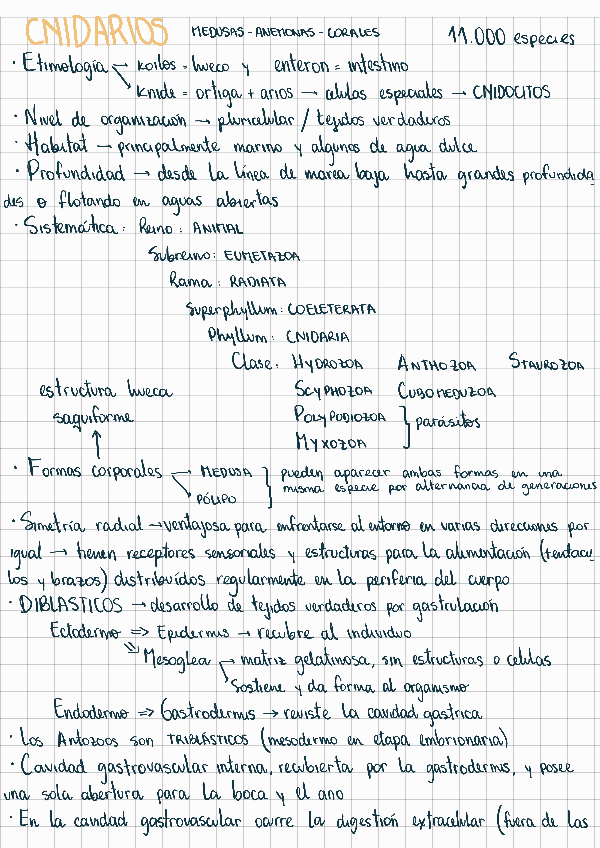 CNIDARIOS MEDUSAS - ANEMONAS - CORALES 11.000 especies
· Etimología → koilos = hueco y enteron = intestino
→ knide = ortiga + arios → células especiales → CNIDOCITOS
· Nivel de organización → pluricelular / tejidos verdaderos
· Habitat → principalmente marino y algunos de agua dulce
· Profundidad → desde la línea de marea baja hasta grandes profundida
des o flotando en aguas abiertas
· Sistemática: Reino: ANIMAL
Subreino: EUMETAZOA
Rama: RADIATA
Superphyllum: COELETERATA
Phyllum: CNIDARIA
Clase: HYDROZOA ANTHOZOA STAUROZOA
estructura hueca SCYPHOZOA CUBOMEDUZOA
saquiforme POLYPODIOZOA } parásitos
MYXOZOA
· Formas corporales → MEDUSA } pueden aparecer ambas formas en una
→ PÓLIPO misma especie por alternancia de generaciones
· Simetría radial → ventajosa para enfrentarse al entorno en varias direcciones por
igual → tienen receptores sensoriales y estructuras para la alimentación (tentácu
los y brazos) distribuídos regularmente en la periferia del cuerpo
· DIBLÁSTICOS → desarrollo de tejidos verdaderos por gastrulación
Ectodermo => Epidermis → recubre al individuo
=> Mesoglea → matriz gelatinosa, sin estructuras o celulas
→ Sostiene y da forma al organismo
Endodermo => Gastrodermis → reviste la cavidad gastrica
· Los Antozoos son TRIBLÁSTICOS (mesodermo en etapa embrionaria)
· Cavidad gastrovascular interna, recubierta por la gastrodermis, y posee
una sola abertura para la boca y el ano
· En la cavidad gastrovascular ocurre la digestión extracelular (fuera de las